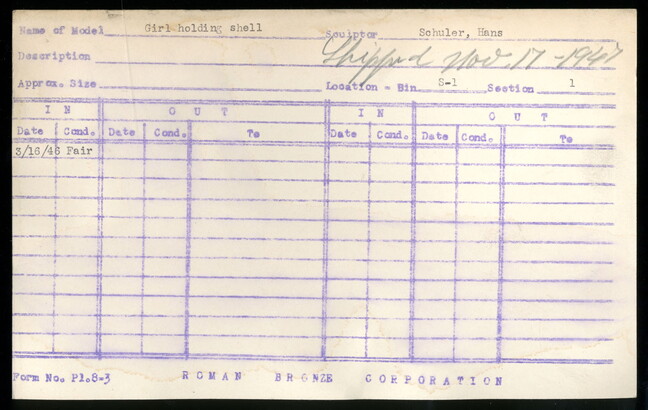 Name of Model Girl holding shell Sculptor Schuler, Hans
Description Shipped Nov. 17 - 1947
Approx. Size Location - Bin S-1 Section 1
IN OUT IN OUT
Date Cond. Date Cond. To Date Cond. Date Cond. To
3/16/46 Fair
Form No. Pl.8-3 ROMAN BRONZE CORPORATION